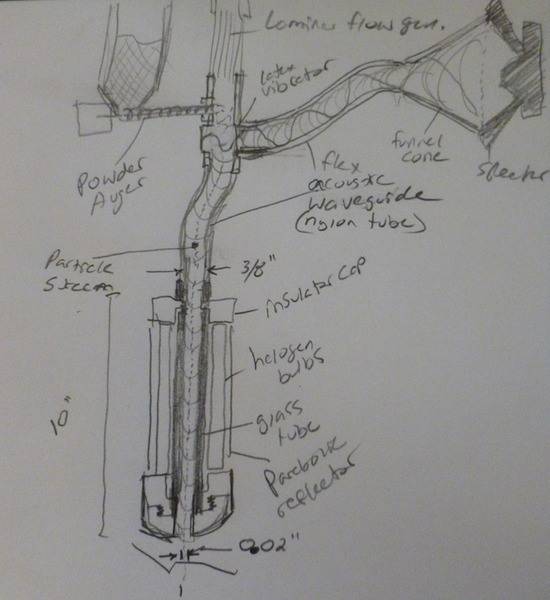 Laminar flow gen.
latex
vibrator
Powder
Auger
funnel
cone
speaker
flex
acoustic
waveguide
(nylon tube)
Particle
Stream
3/8"
insulator cap
halogen
bulbs
10"
glass
tube
Parabolic
reflector
0.02"